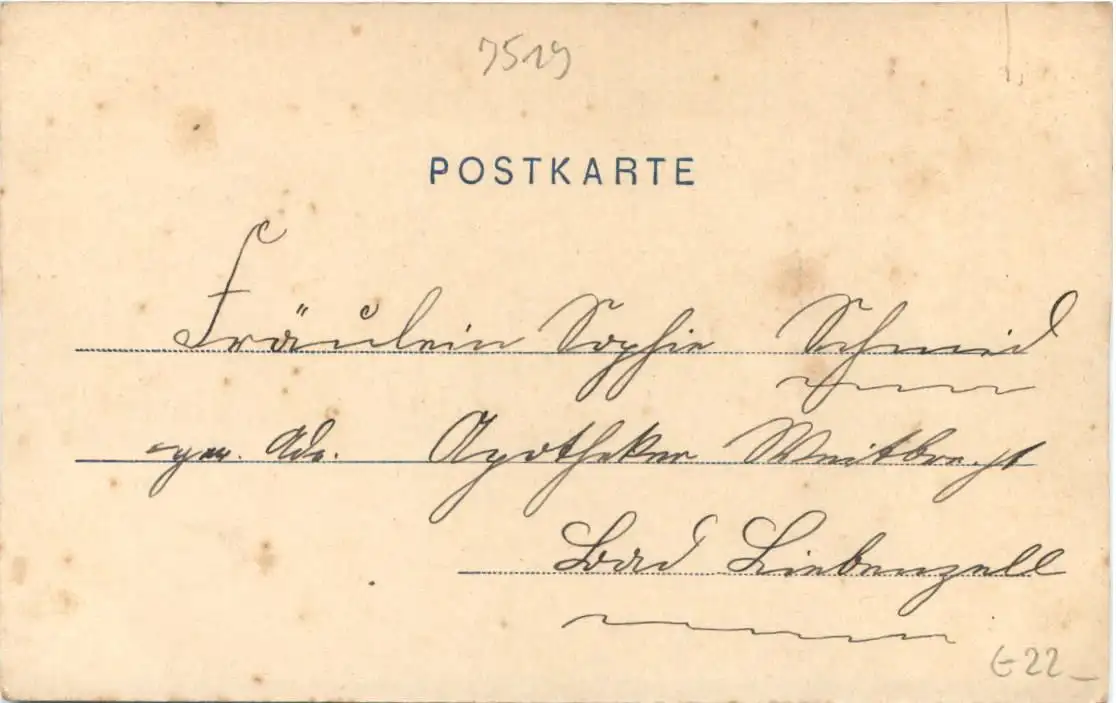 7519
POSTKARTE
Fräulein Sophie Schmid
per Adr. Apotheker Weitbrecht
Bad Liebenzell
G 22